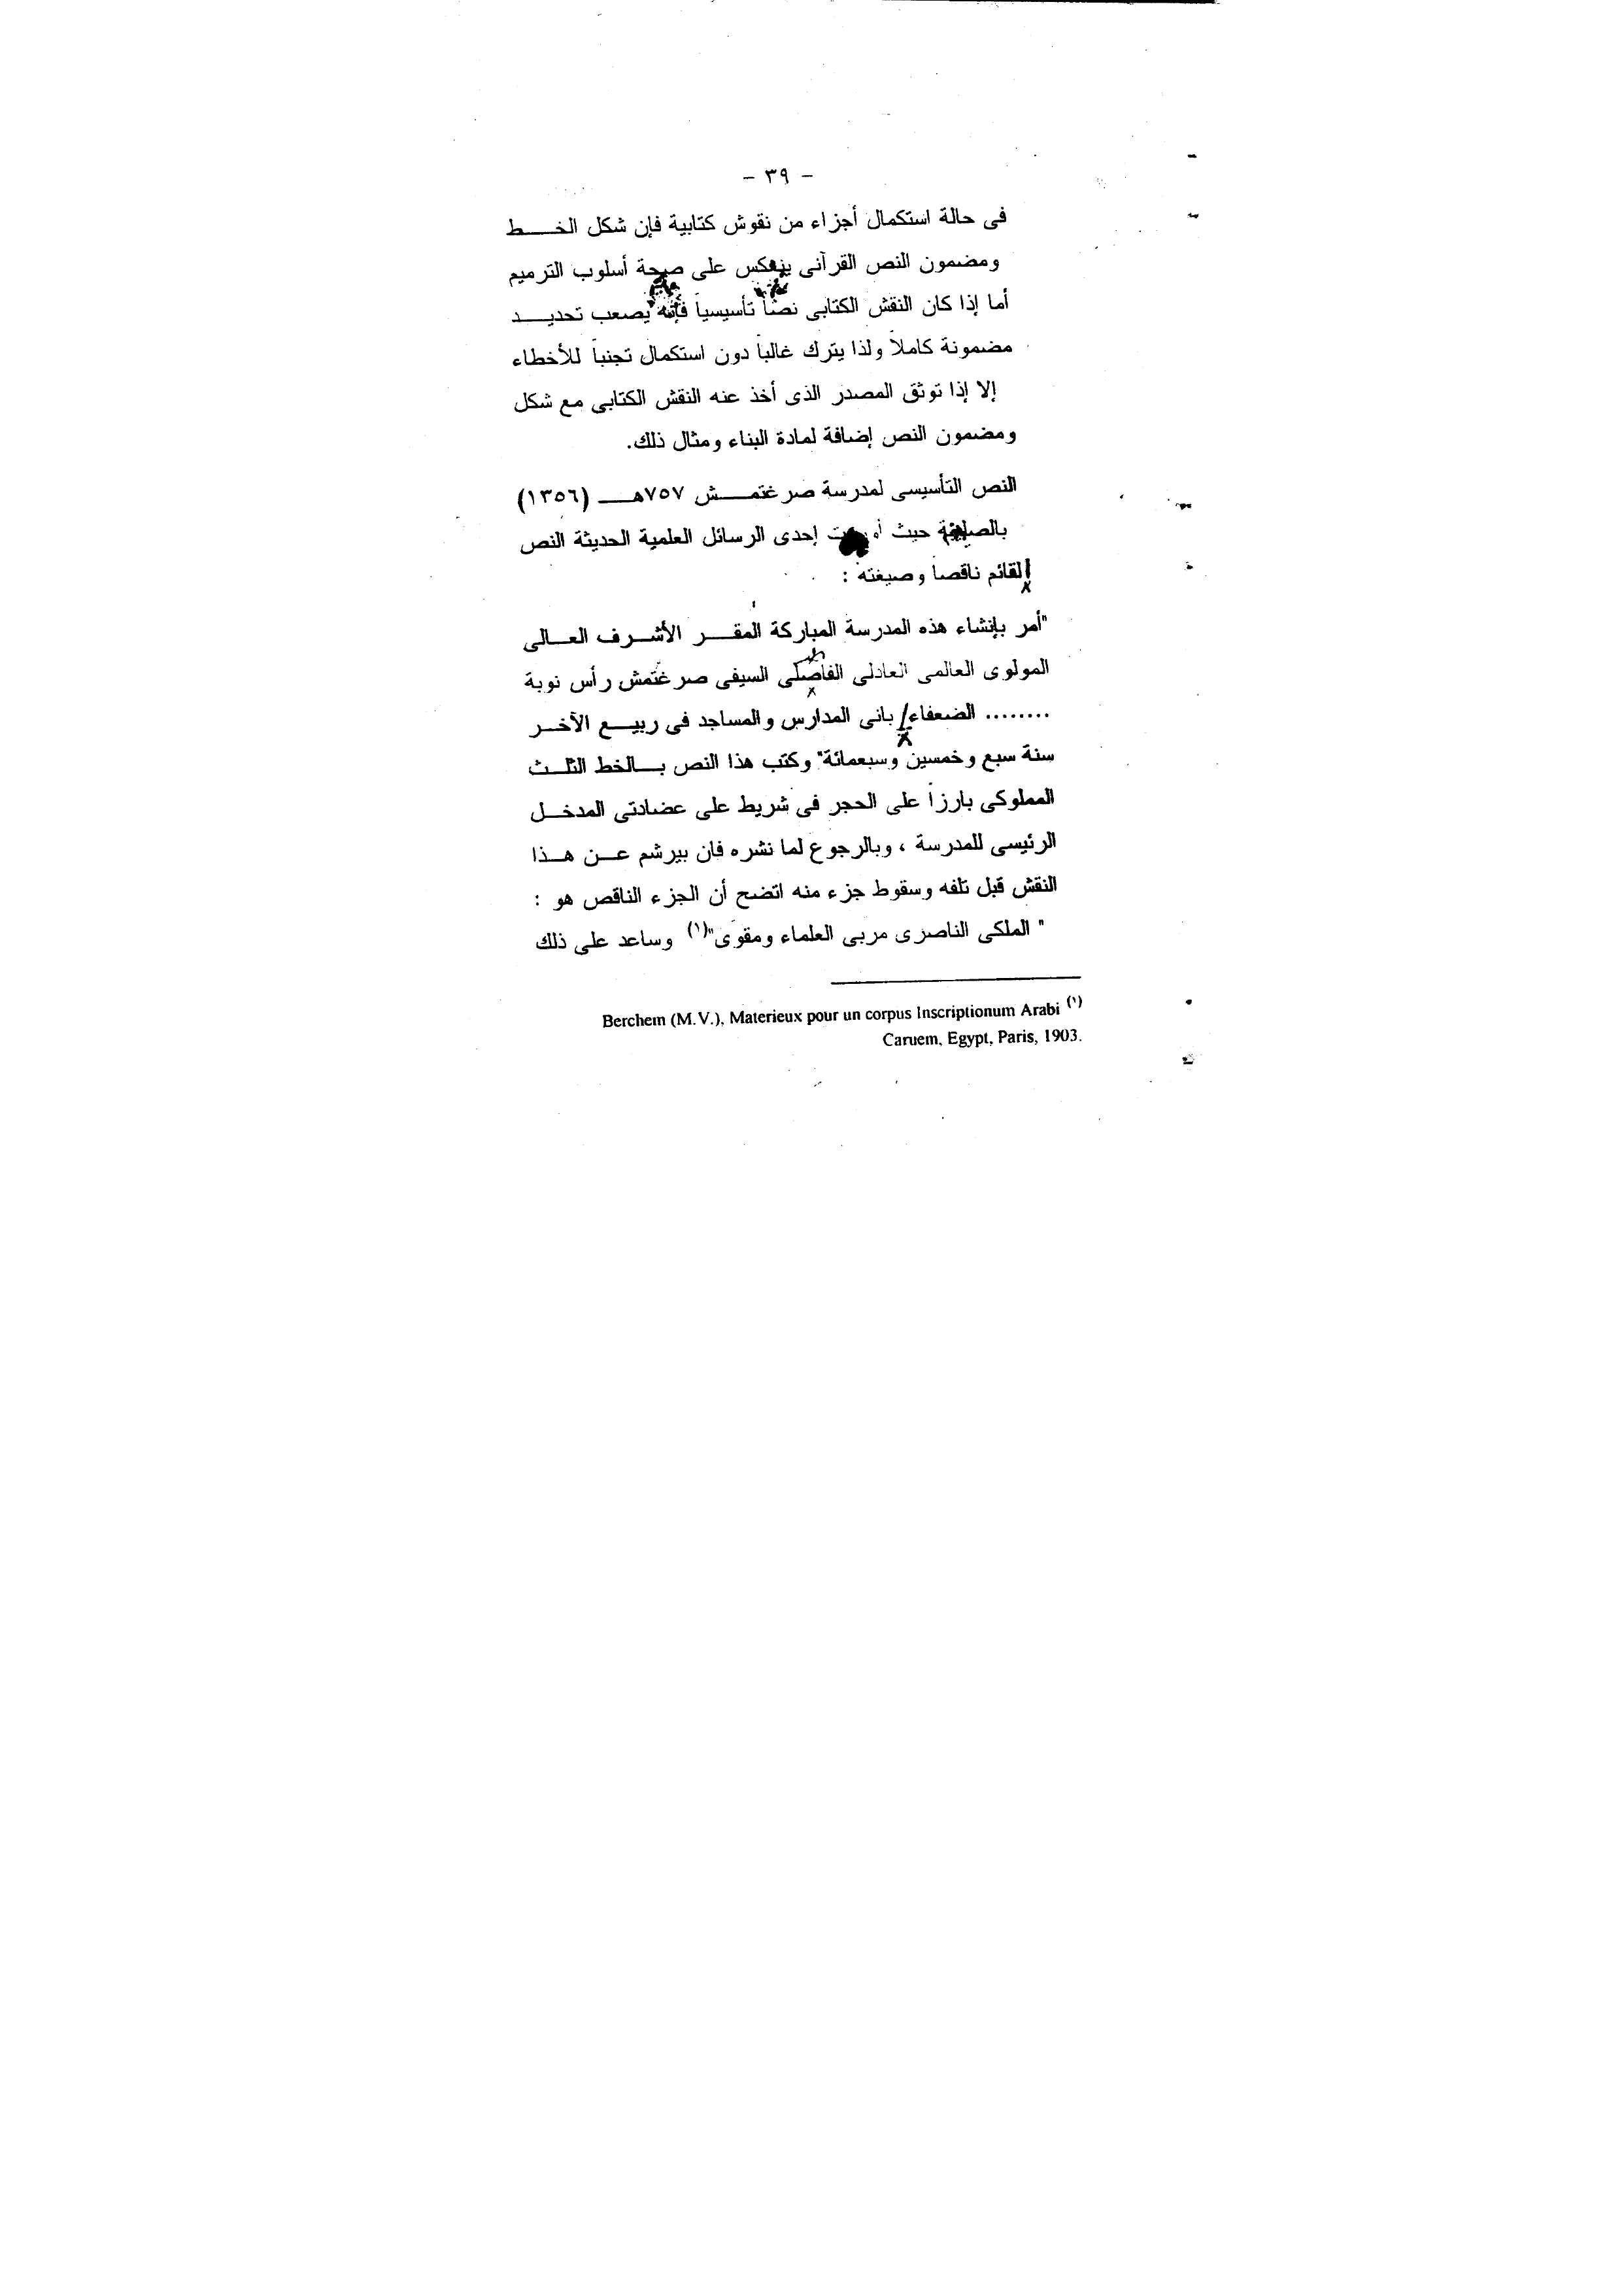 - ٣٩ -
فى حالة استكمال أجزاء من نقوش كتابية فإن شكل الخـــــط
ومضمون النص القرآنى ينعكس على صحة أسلوب الترميم
أما إذا كان النقش الكتابى نصاً تأسيسياً فإنه يصعب تحديـــــد
مضمونة كاملاً ولذا يترك غالباً دون استكمال تجنباً للأخطاء
إلا إذا توثق المصدر الذى أخذ عنه النقش الكتابى مع شكل
ومضمون النص إضافة لمادة البناء ومثال ذلك.
النص التأسيسى لمدرسة صرغتمـــــش ٧٥٧هــــ (١٣٥٦)
حيث إحدى الرسائل العلمية الحديثة النص
القائم ناقصاً وصيغته :
"أمر بإنشاء هذه المدرسة المباركة المقـــر الأشــرف العــالى
المولوى العالمى العادلى السيفى صرغتمش رأس نوبة
........ الضعفاء/ بانى المدارس والمساجد فى ربيـــع الآخــر
سنة سبع وخمسين وسبعمائة" وكتب هذا النص بـــالخط الثلــث
المملوكى بارزاً على الحجر فى شريط على عضادتى المدخــل
الرئيسى للمدرسة ، وبالرجوع لما نشره فان بيرشم عــن هــذا
النقش قبل تلفه وسقوط جزء منه اتضح أن الجزء الناقص هو :
" الملكى الناصرى مربى العلماء ومقوى"(١) وساعد على ذلك
Berchem (M.V.), Materieux pour un corpus Inscriptionum Arabi (١)
Caruem, Egypt, Paris, 1903.